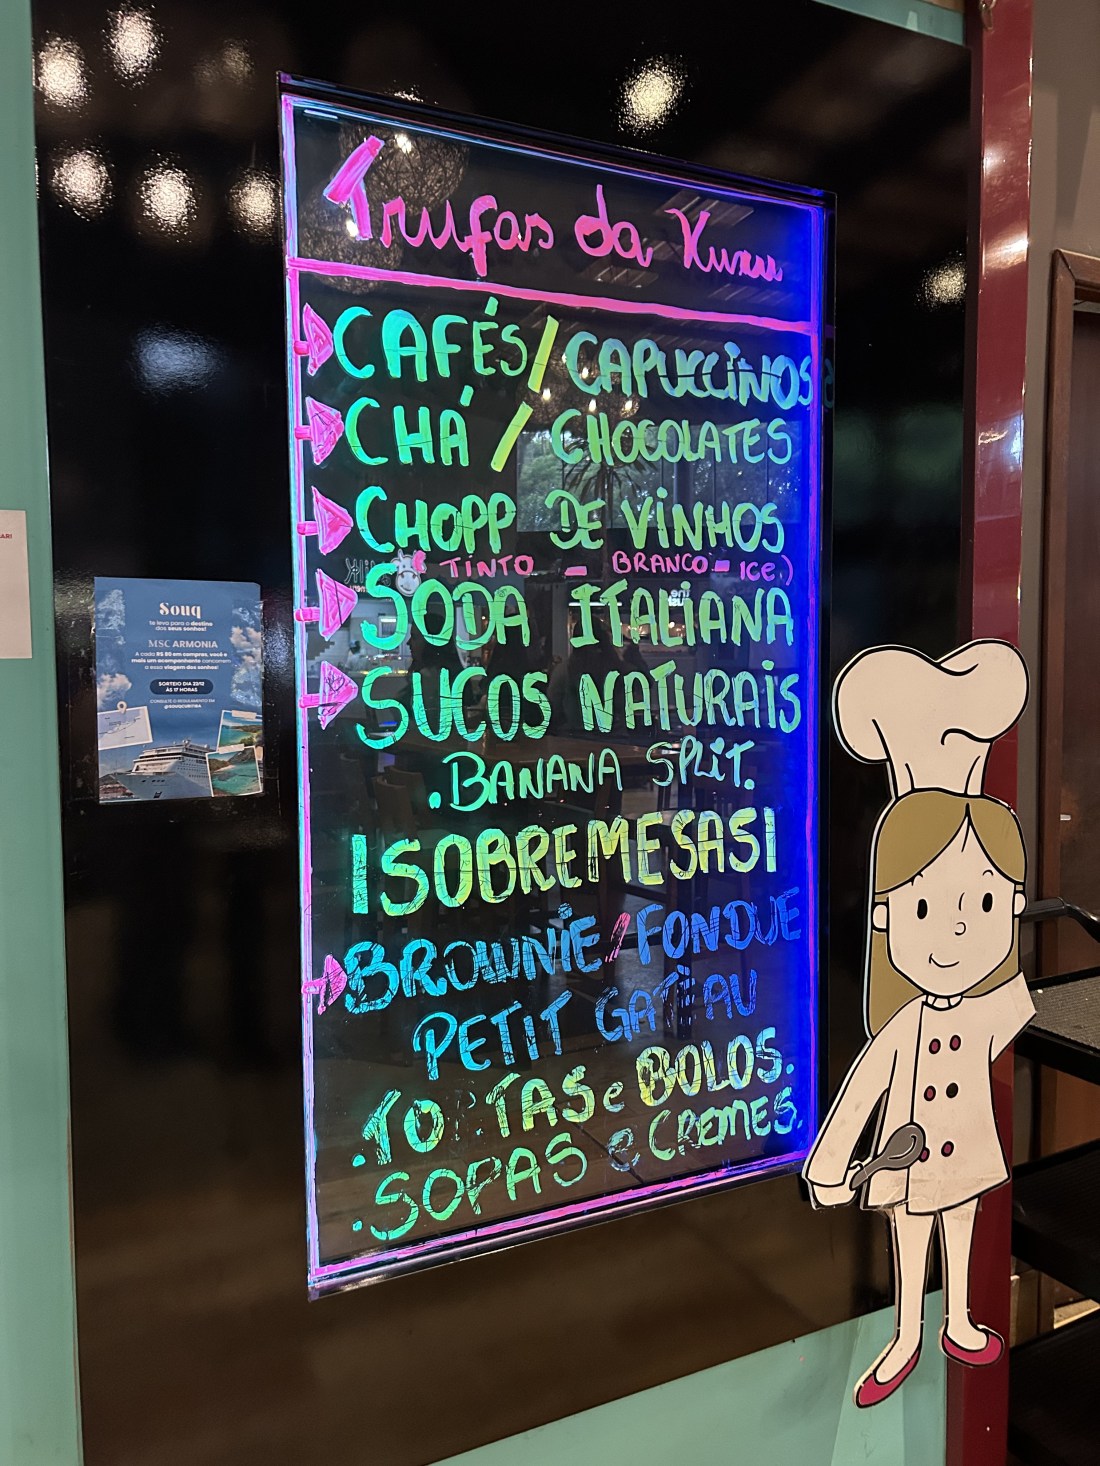 Trufas da Xuxu
CAFÉS/CAPUCCINOS
CHÁ / CHOCOLATES
CHOPP DE VINHOS
TINTO - BRANCO - ICE.)
SODA ITALIANA
SUCOS NATURAIS
.BANANA SPLIT.
ISOBREMESASI
BROWNIE/FONDUE
PETIT GATEAU
.TO TAS e BOLOS.
.SOPAS e CREMES.
Souq
te leva para o destino
dos seus sonhos!
MSC ARMONIA
A cada R$ 80 em compras, você e
mais um acompanhante concorrem
a essa viagem dos sonhos!
SORTEIO DIA 22/12
ÀS 17 HORAS
CONSULTE O REGULAMENTO EM